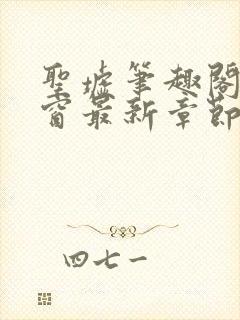 聖墟筆趣閣
窗最新章節
四七一